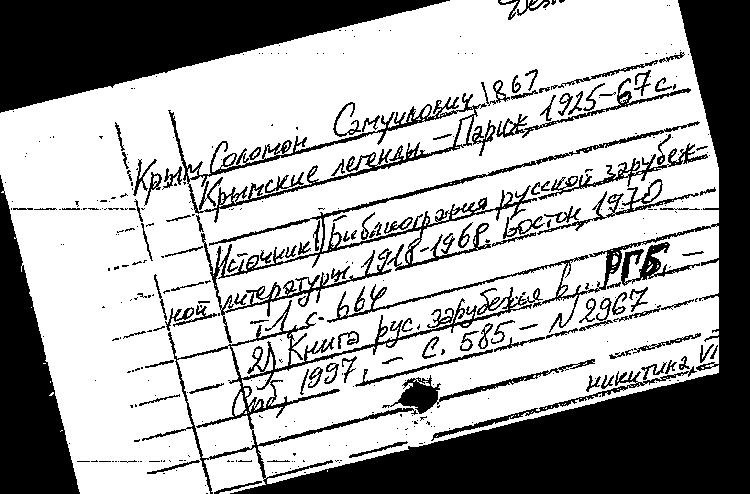 Крым, Соломон Самуилович, 1867
Крымские легенды. – Париж, 1925–67 с.
Источник: 1) Библиография русской зарубеж-
ной литературы. 1918–1968. Бостон, 1970
т. 1, с. 664
2) Книга рус. зарубежья в ... РГБ, –
Спб, 1997, – С. 585, – N 2967
никитина, VI